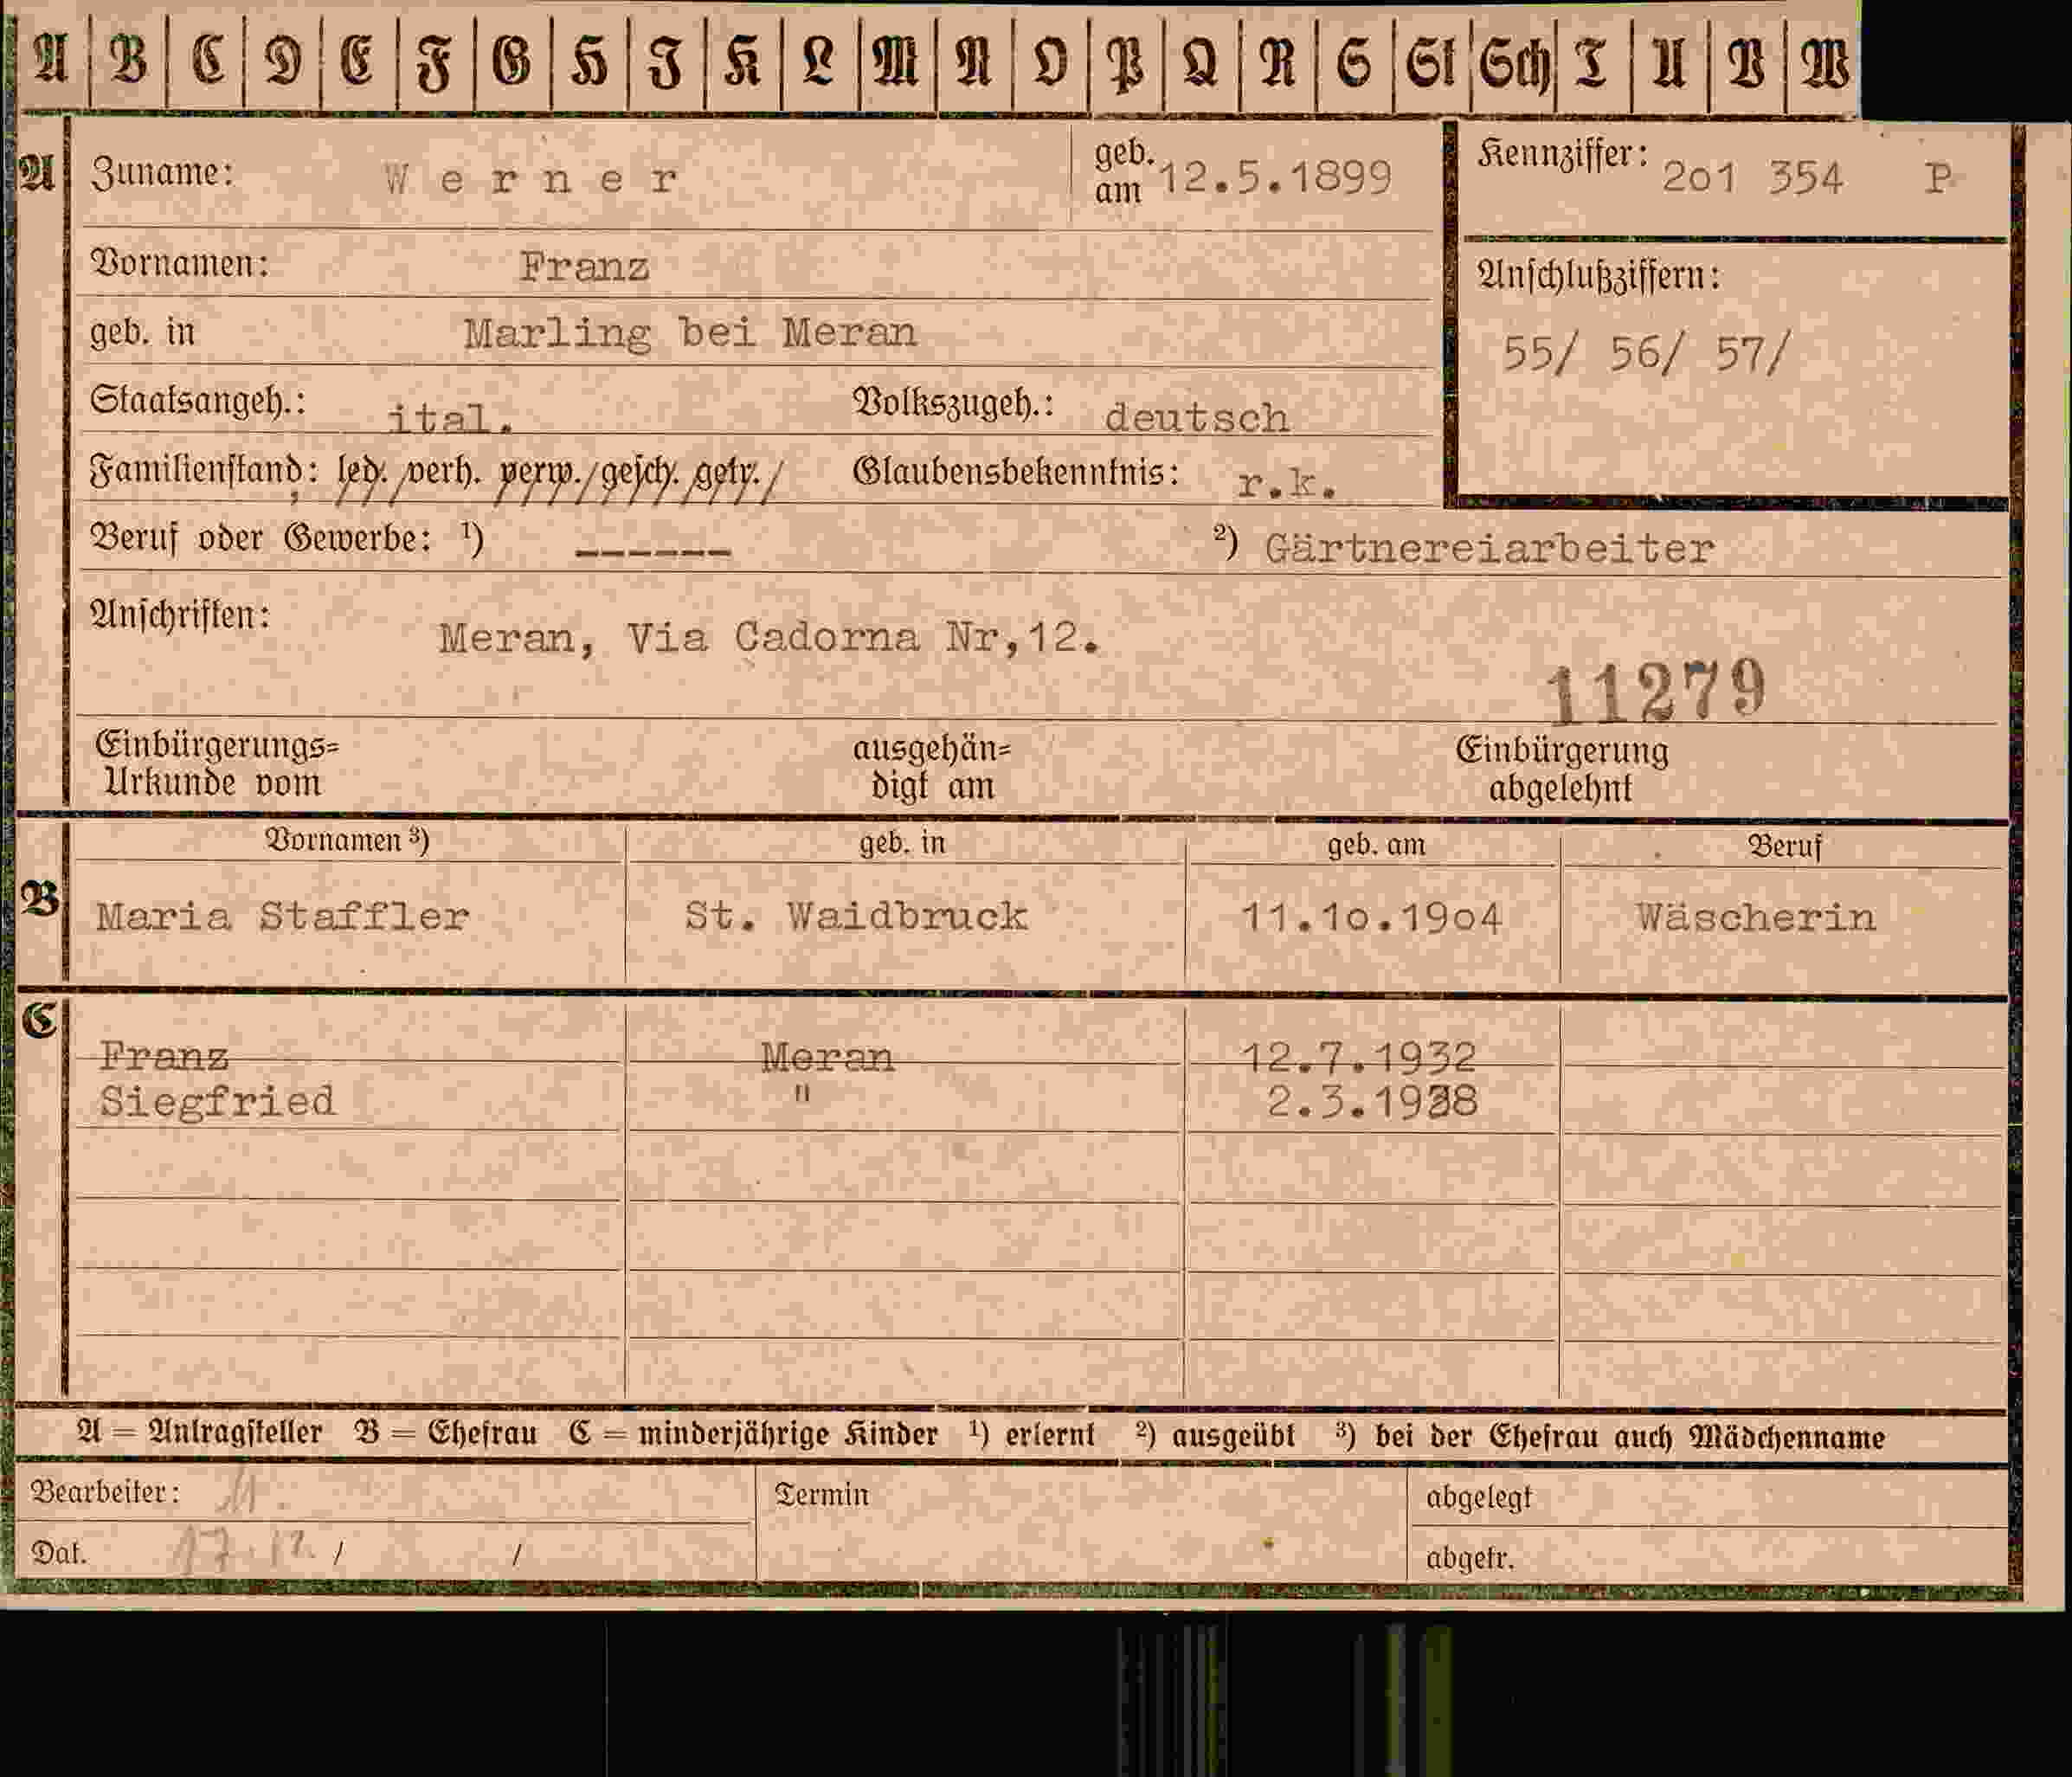 A B C D E F G H I K L M N O P Q R S St Sch T U V W
A Zuname: Werner geb. am 12.5.1899 Kennziffer: 2o1 354 P
Vornamen: Franz
Anschlußziffern:
geb. in Marling bei Meran
55/ 56/ 57/
Staatsangeh.: ital. Volkszugeh.: deutsch
Familienstand: led. verh. verw. gesch. getr. Glaubensbekenntnis: r.k.
Beruf oder Gewerbe: ¹) ------ ²) Gärtnereiarbeiter
Anschriften: Meran, Via Cadorna Nr,12.
11279
Einbürgerungs= ausgehän= Einbürgerung
Urkunde vom digt am abgelehnt
Vornamen ³) geb. in geb. am Beruf
B Maria Staffler St. Waidbruck 11.1o.19o4 Wäscherin
C
Franz Meran 12.7.1932
Siegfried " 2.3.1938
A = Antragsteller B = Ehefrau C = minderjährige Kinder ¹) erlernt ²) ausgeübt ³) bei der Ehefrau auch Mädchenname
Bearbeiter: Termin abgelegt
Dat. 17.12. / / abgetr.